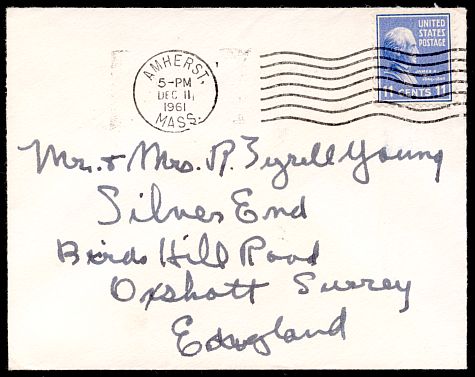 AMHERST,
5-PM
DEC 11,
1961
MASS.
UNITED
STATES
POSTAGE
11 CENTS 11
Mr. & Mrs. R. Tyrell Young
Silver End
Birds Hill Road
Oxshott Surrey
England